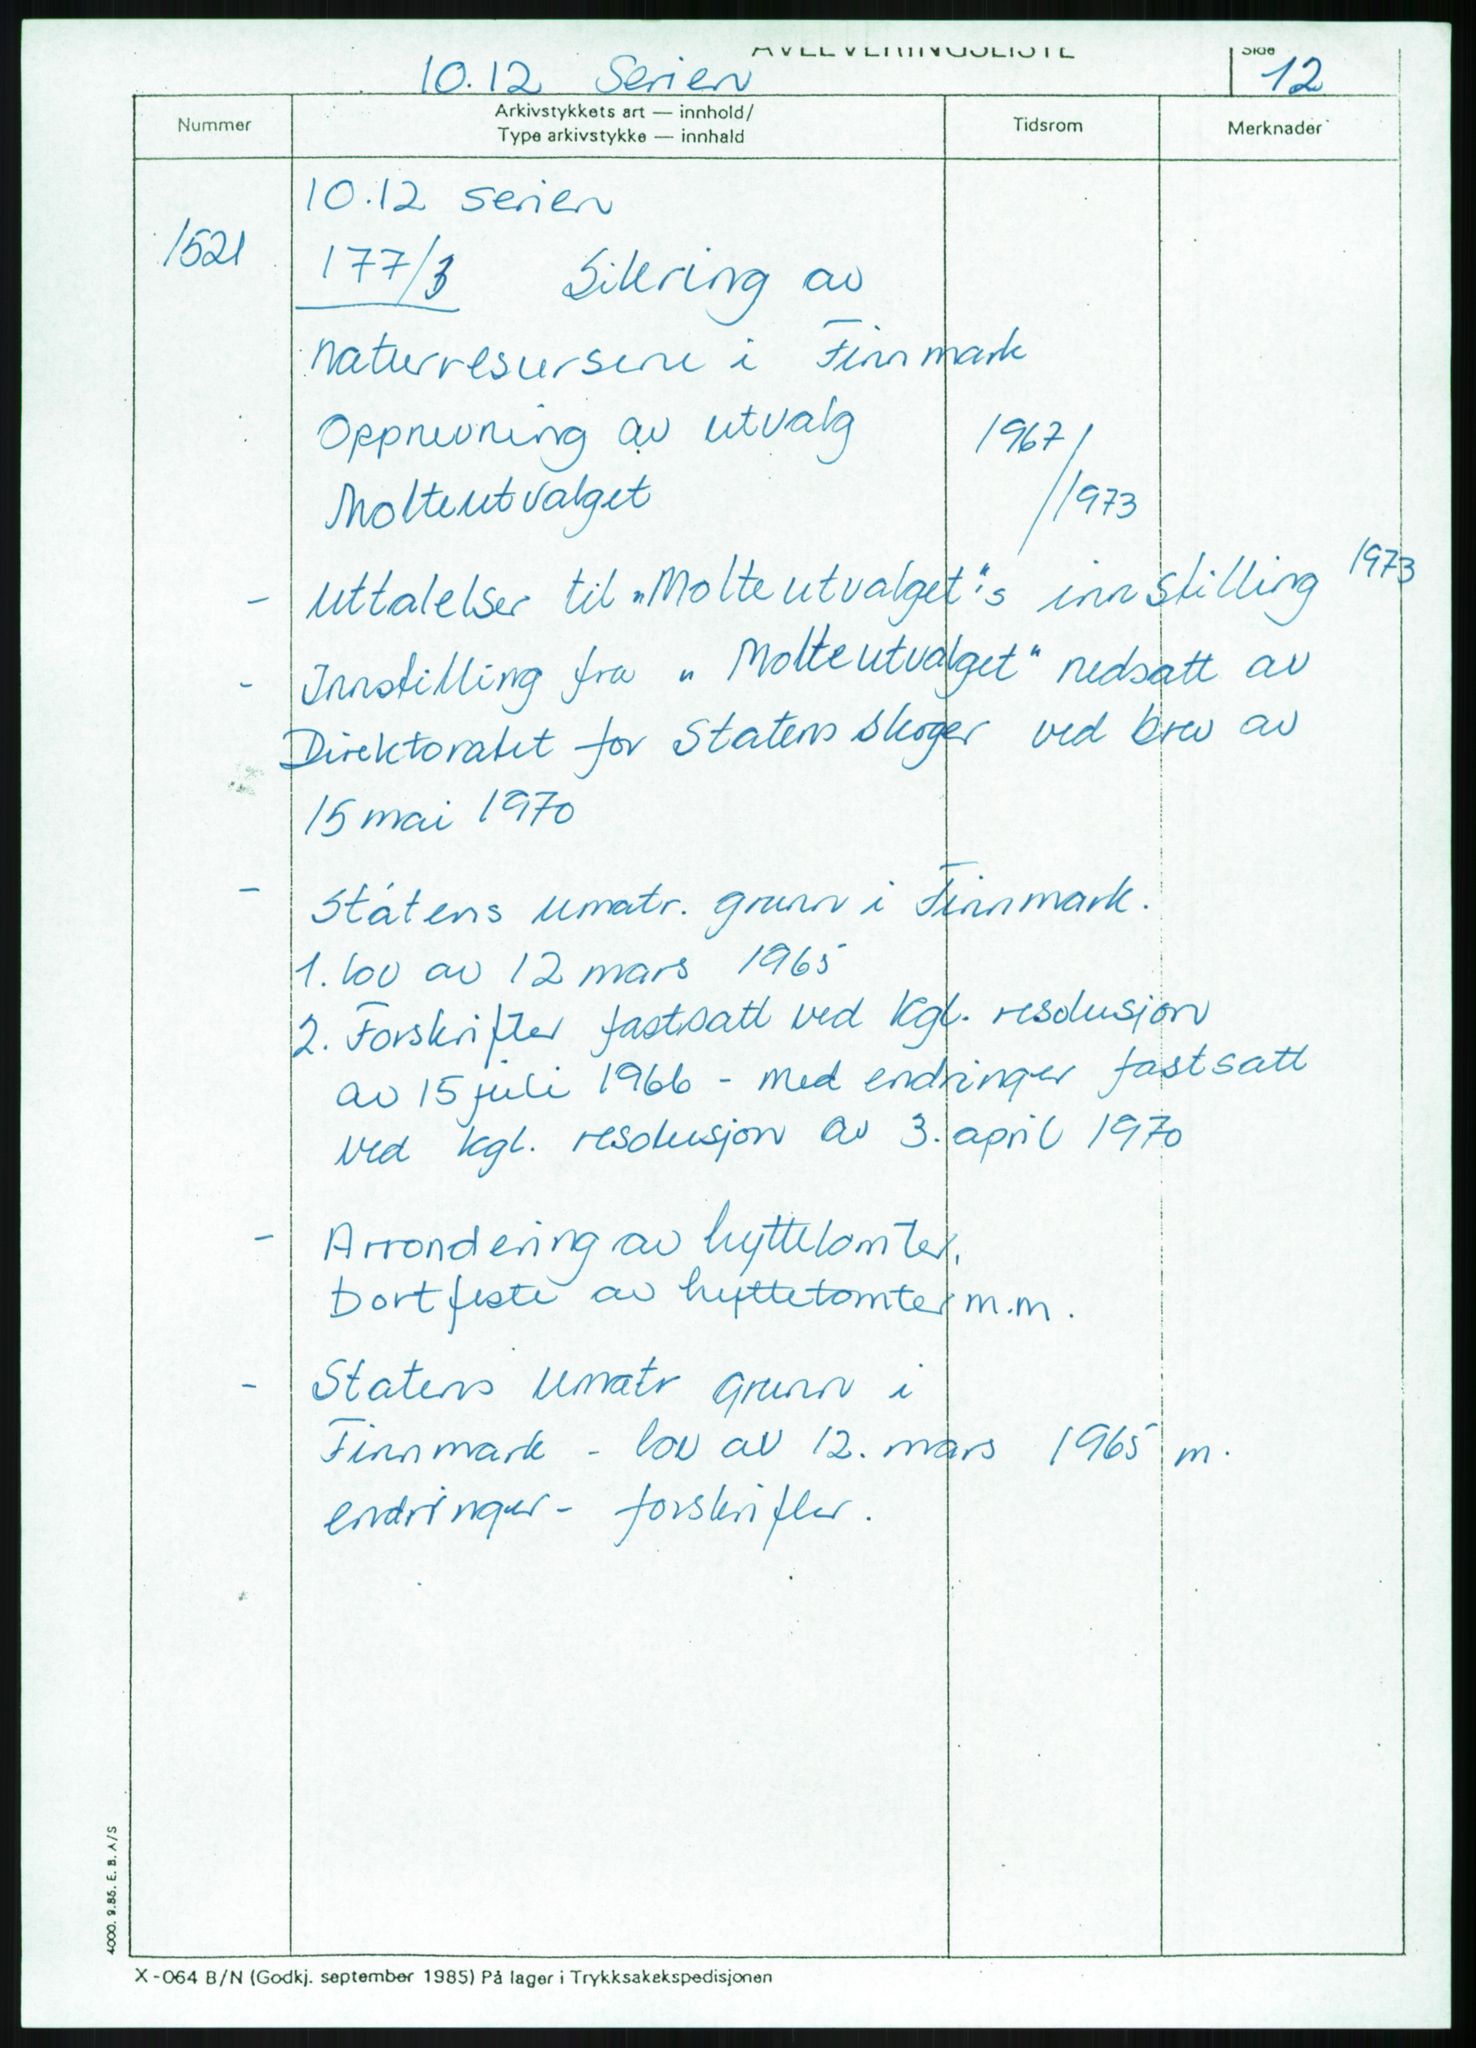 AVLEVERINGSLISTE
Side
10.12 Serien
12
Nummer
Arkivstykkets art — innhold/
Type arkivstykke — innhald
Tidsrom
Merknader
10.12 serien
1521
177/3 Sikring av
naturresursene i Finnmark
Oppnevning av utvalg
1967/
Molteutvalget
/1973
- Uttalelser til „Molteutvalget"'s innstilling 1973
- Innstilling fra „Molteutvalget" nedsatt av
Direktoratet for Statens skoger ved brev av
15 mai 1970
- Statens umatr. grunn i Finnmark.
1. lov av 12 mars 1965
2. Forskrifter fastsatt ved kgl. resolusjon
av 15 juli 1966 - med endringer fastsatt
ved kgl. resolusjon av 3. april 1970
- Arrondering av hyttetomter.
Bortfeste av hyttetomter m.m.
- Statens umatr grunn i
Finnmark - lov av 12. mars 1965 m.
endringer - forskrifter.
4000. 9.85. E. B. A/S
X-064 B/N (Godkj. september 1985) På lager i Trykksakekspedisjonen